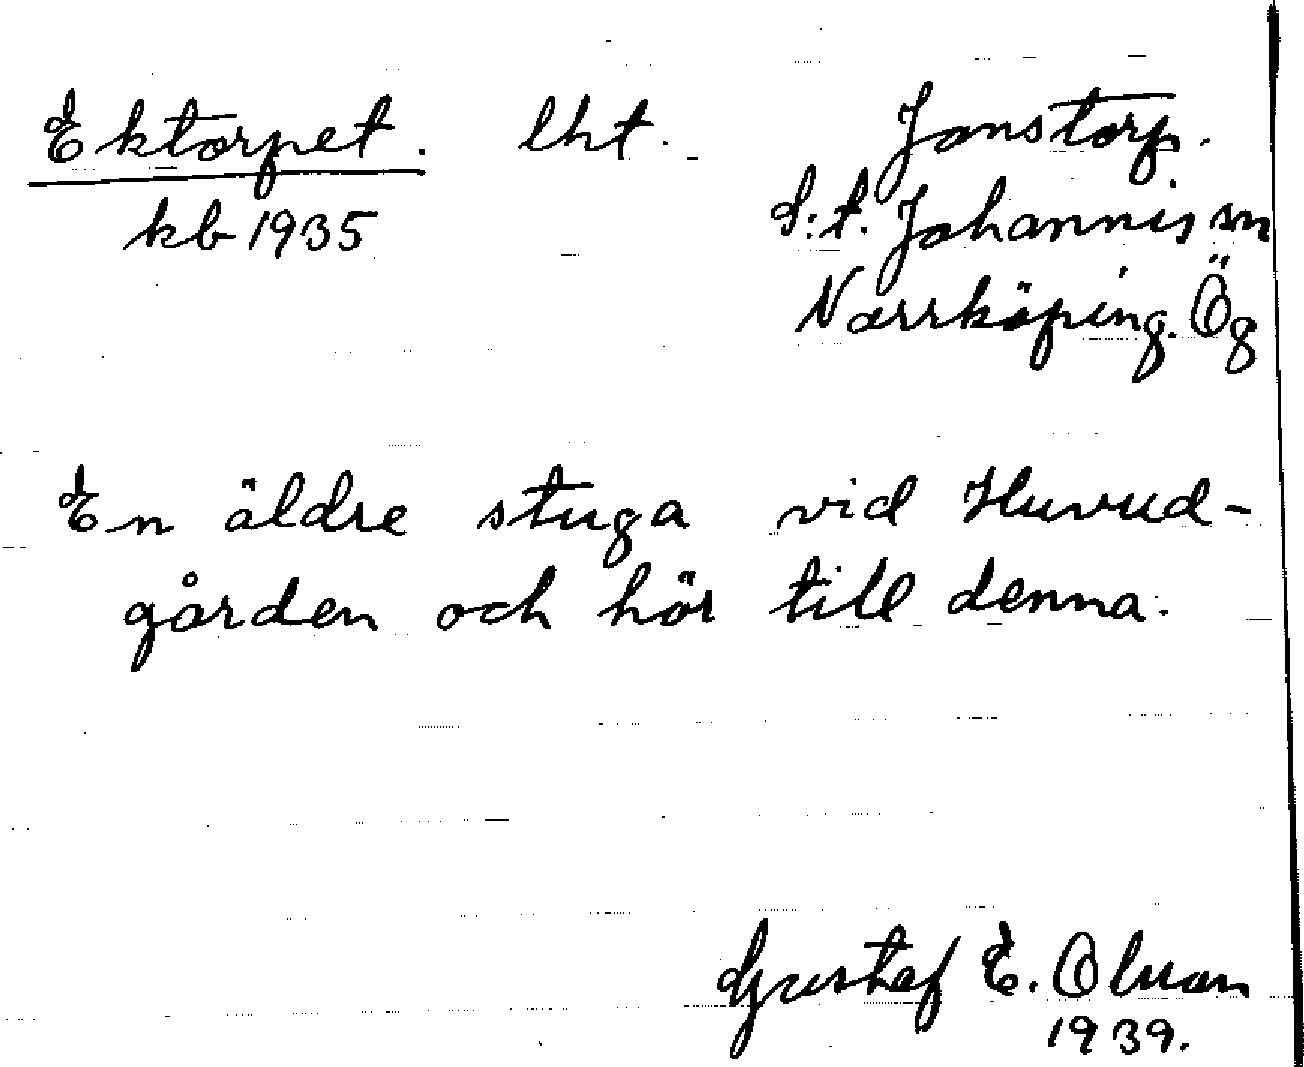 Ektorpet. lht. Jonstorp.
kb 1935 S:t. Johannis sn
Norrköping. Ög
En äldre stuga vid Huvud-
gården och hör till denna.
Gustaf E. Olsson
1939.